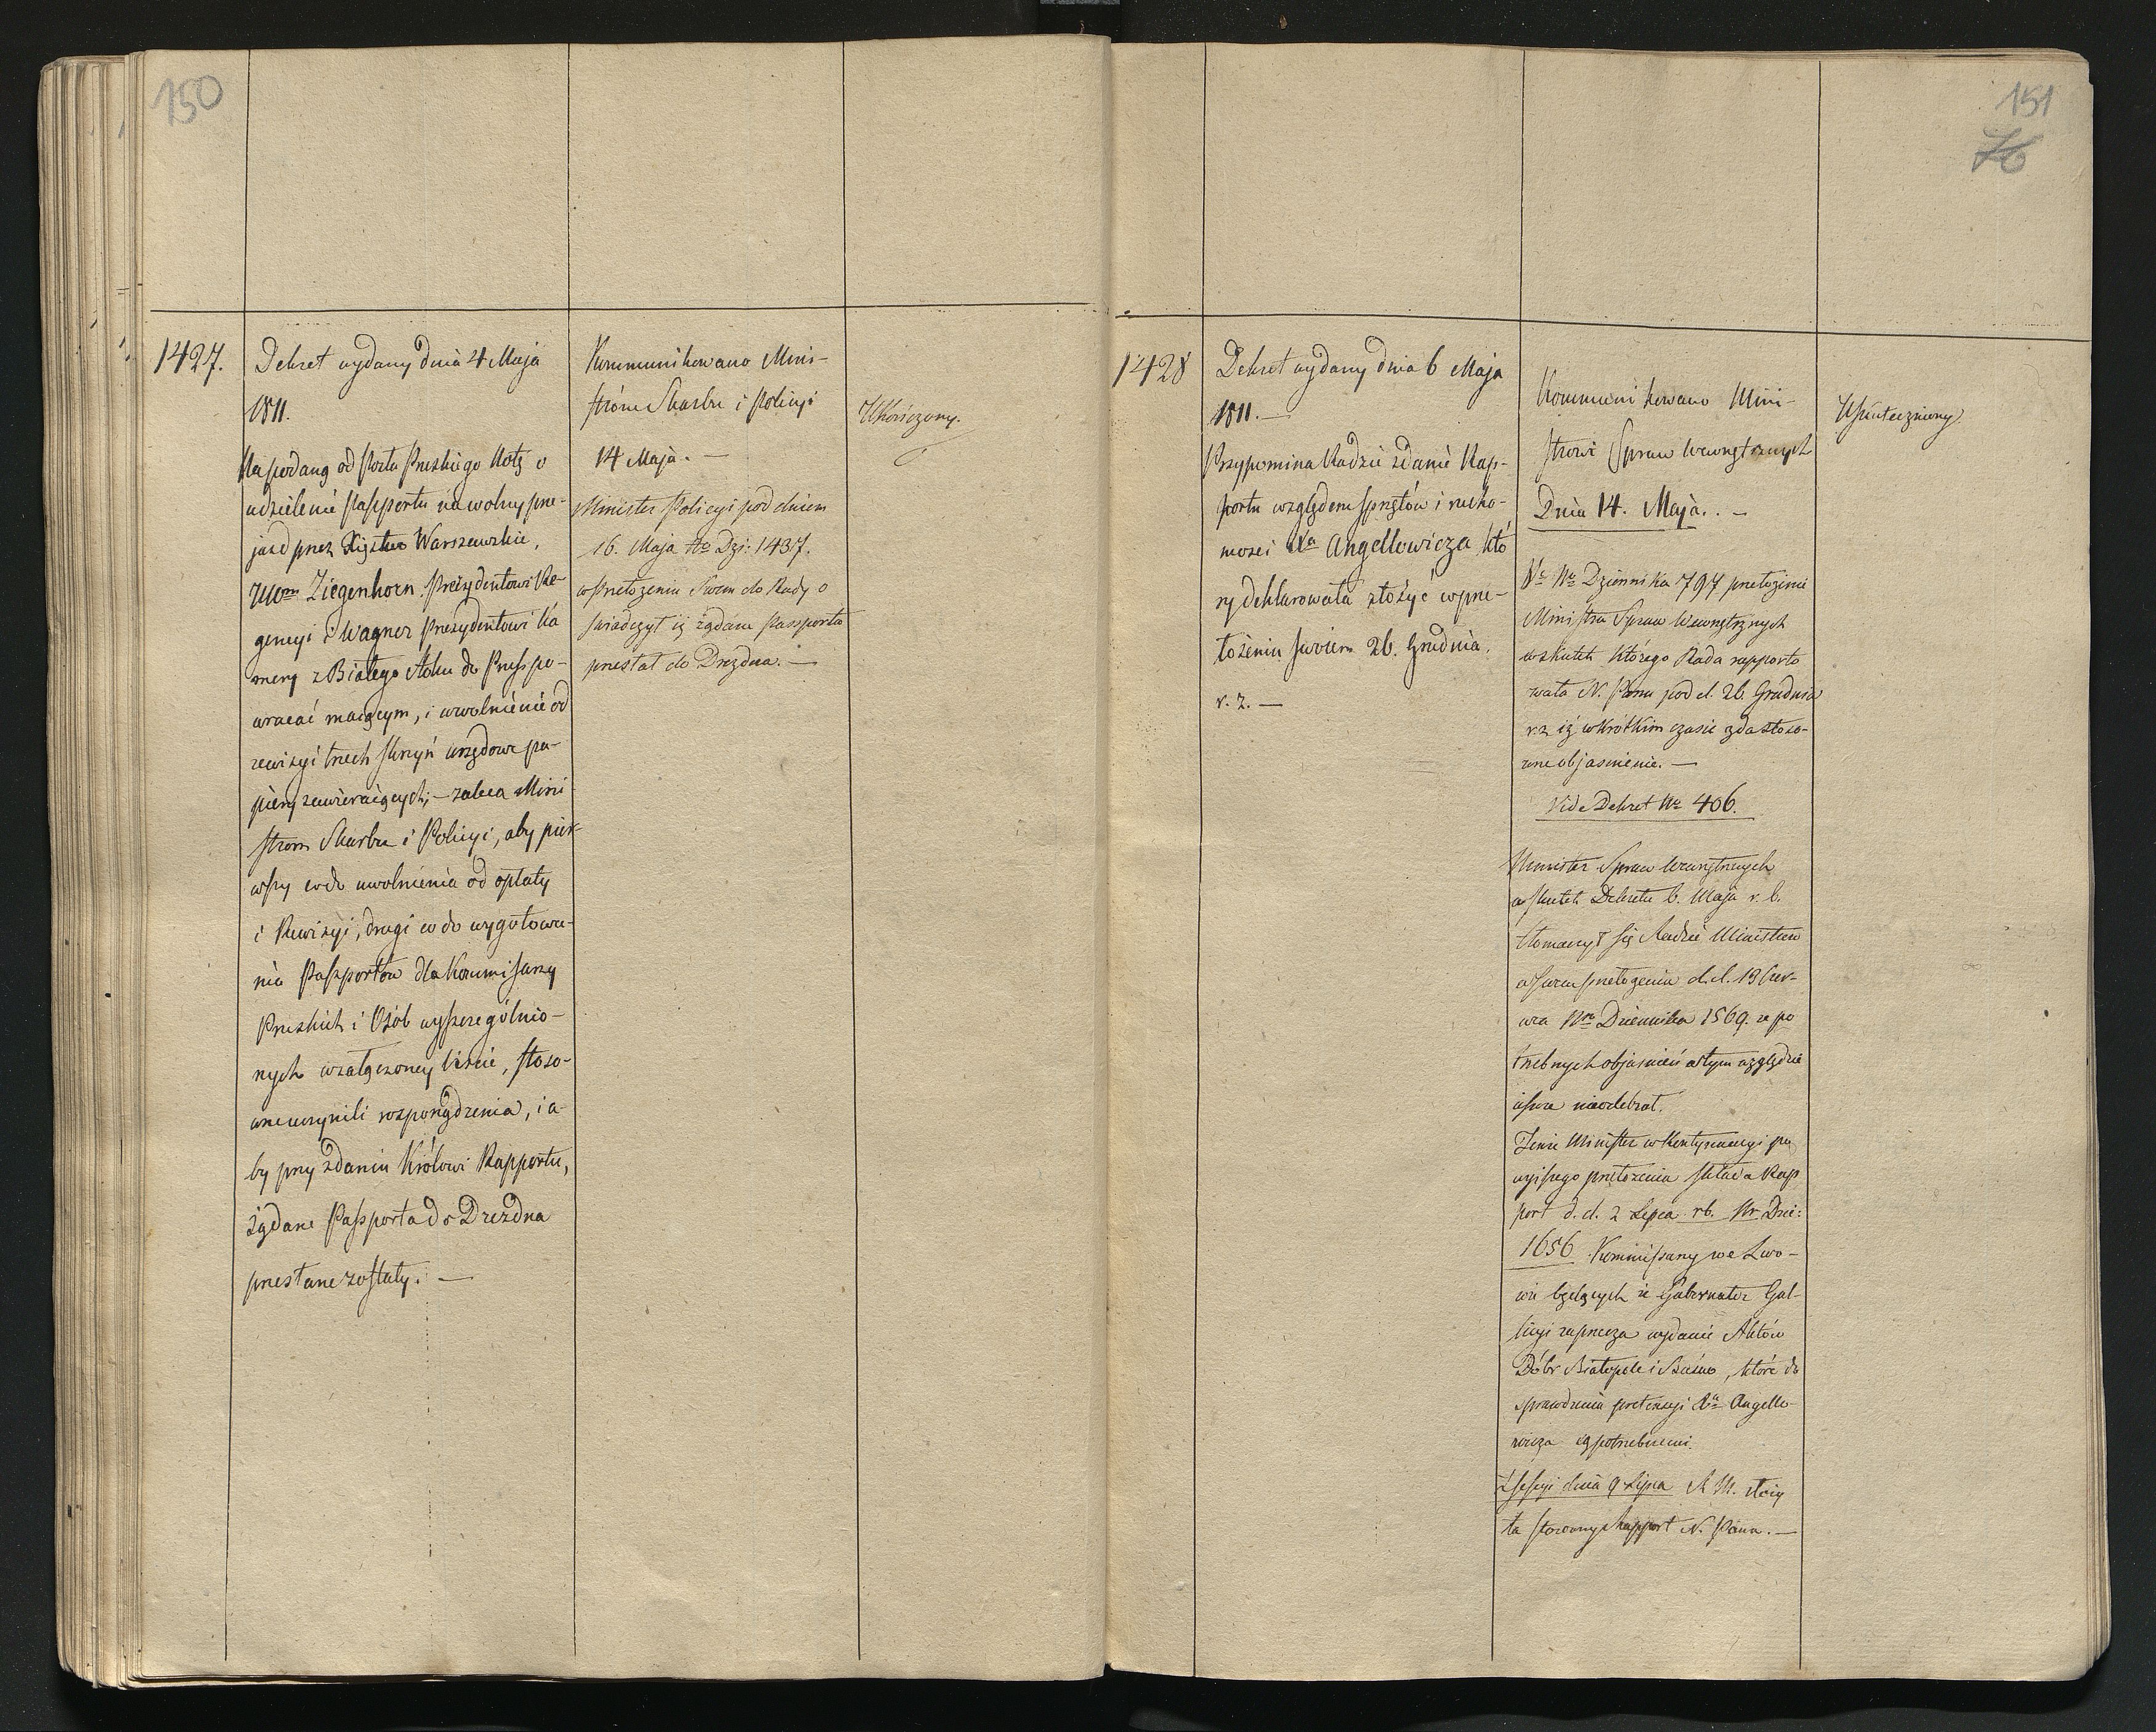 150
1427.
Dekret wydany dnia 4 Maja
1811.
Na podaną od Posła Pruskiego Notę o
udzielenie Passportu na wolny prze-
jazd przez Xięstwo Warszawskie,
Ziegenhorn Prezydentowi Re-
gencyi i Wagner Prezydentowi Ka
mery z Białego Stoku do Pruss po-
wracać maiącym, i uwolnienie od
rewizyi trzech skrzyń urzędowe pa-
piery zawieraiących; — zaleca Mini-
strom Skarbu i Policyi, aby pier-
wszy co do uwolnienia od opłaty
i Rewizyi, drugi co do wygotowa-
nia Passportów dla Kommissarzy
Pruskich i Osób wyszczególnio-
nych w załączoney liście, stoso-
wne uczynili rozporządzenia, i a-
by przy zdaniu Królowi Rapportu,
żądane Passporta do Drezdna
przesłane zostały. —
Kommunikowano Mini-
strom Skarbu i Policyi
14 Maja. —
Minister Policyi pod dniem
16. Maja No Dzi: 1437.
w przełożeniu Swem do Rady o
świadczył iż żądane Passporta
przesłał do Drezdna. —
Ukończony.
151
76
1428
Dekret wydany dnia 6 Maja
1811. —
Przypomina Radzie zdanie Rap-
portu względem sprzętów i rucho-
mości Xa Angellowicza, któ
ry deklarowała złożyć w prze-
łożeniu swoiem 26. Grudnia.
r. z. —
Kommunikowano Mini-
strowi Spraw Wewnętrznych
Dnia 14. Maja. . —
No Dziennika 797 przełożenie
Ministra Spraw Wewnętrznych
w skutek którego Rada rapporto
wała N. Panu pod d. 26 Grudnia
r. z. iż w krótkim czasie zda stoso-
wne objaśnienie. —
Vide Dekret No 406.
Minister Spraw Wewnętrznych
w skutek Dekretu 6. Maja r. b.
tłomaczył się Radzie Ministrów
w swem przełożeniu d. d. 13 Czer-
wca Nro Dziennika 1569. że po
trzebnych objaśnień w tym względzie
ieszcze nieodebrał.
Tenże Minister w kontynuacyi po
wyższego przełożenia składa Rap
port d. d. 2 Lipca rb. Nr Dzie:
1656 Kommissarzy we Lwo-
wie będących że Gubernator Gal-
licyi zaprzecza wydanie Aktów
Dóbr Białopole i Buśno, które do
sprawdzenia pretensyi Xa Angello-
wicza są potrzebnemi.
Z Sessyi dnia 9 Lipca R M. złoży
ła stosowny Rapport N. Panu. —
Uskuteczniony